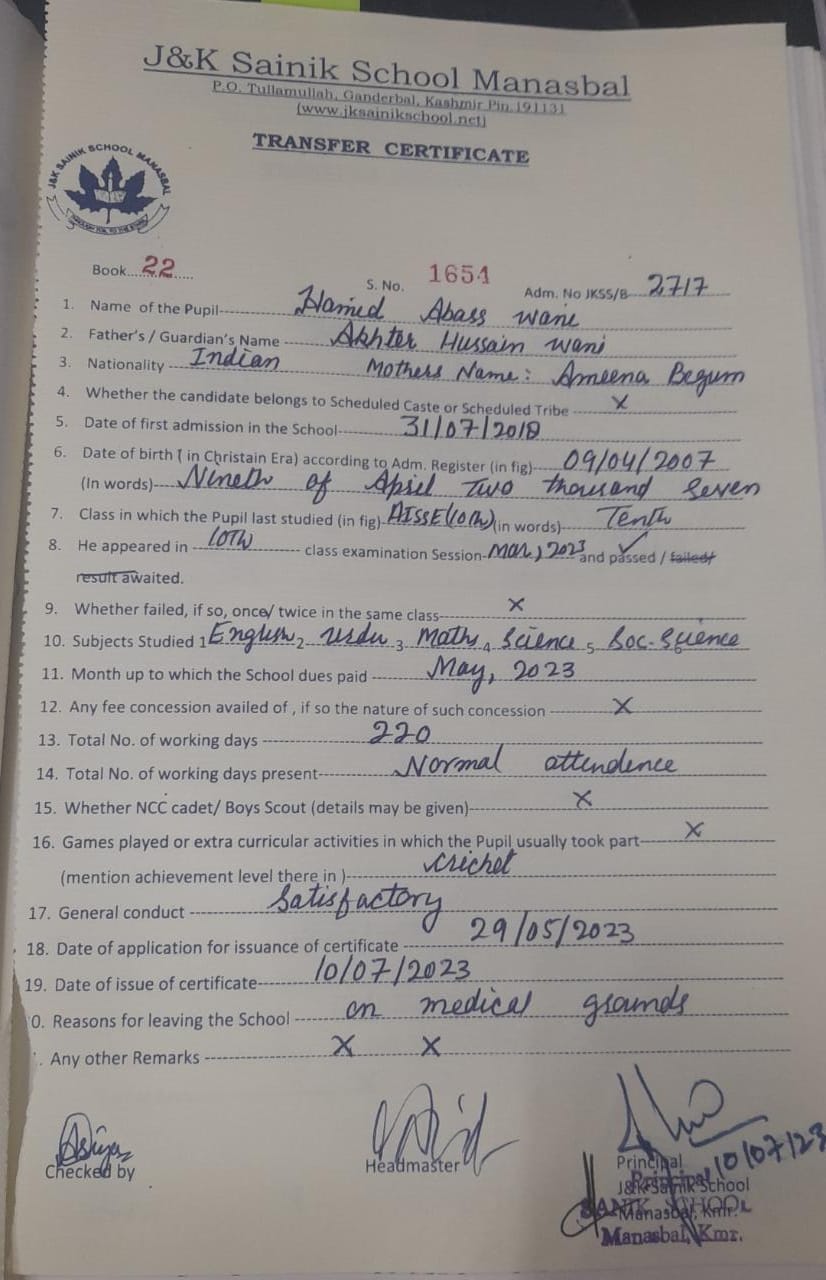 J&K Sainik School Manasbal
P.O. Tullamullah, Ganderbal, Kashmir Pin.191131
(www.jksainikschool.net)
TRANSFER CERTIFICATE
J&K SAINIK SCHOOL MANASBAL
Book....22.....
S. No. 1654
Adm. No JKSS/B----2717
1. Name of the Pupil----------- Hamid Abass wani
2. Father's / Guardian's Name ----- Akhter Hussain wani
3. Nationality ---- Indian Mothers Name: Ameena Begum
4. Whether the candidate belongs to Scheduled Caste or Scheduled Tribe ---- X
5. Date of first admission in the School-------- 31/07/2018
6. Date of birth ( in Christain Era) according to Adm. Register (in fig)---- 09/04/2007
(In words)---- Nineth of April Two thousand Seven
7. Class in which the Pupil last studied (in fig) AISSE(10th) (in words)---- Tenth
8. He appeared in ---- 10TH -------- class examination Session- Mar, 2023 and passed / failed/
result awaited.
9. Whether failed, if so, once/ twice in the same class-------- X
10. Subjects Studied 1 English 2 Urdu 3 Maths 4 Science 5 Soc-Science
11. Month up to which the School dues paid -------- May, 2023
12. Any fee concession availed of , if so the nature of such concession -------- X
13. Total No. of working days -------- 220
14. Total No. of working days present-------- Normal attendence
15. Whether NCC cadet/ Boys Scout (details may be given)-------- X
16. Games played or extra curricular activities in which the Pupil usually took part---- X
(mention achievement level there in )-------- cricket
17. General conduct -------- Satisfactory
18. Date of application for issuance of certificate -------- 29/05/2023
19. Date of issue of certificate-------- 10/07/2023
0. Reasons for leaving the School -------- on medical grounds
. Any other Remarks -------- X X
Checked by
Headmaster
Principal 10/07/23
J&K Sainik School
Manasbal, Kmr.
Principal
SCHOOL
Manasbal, Kmr.